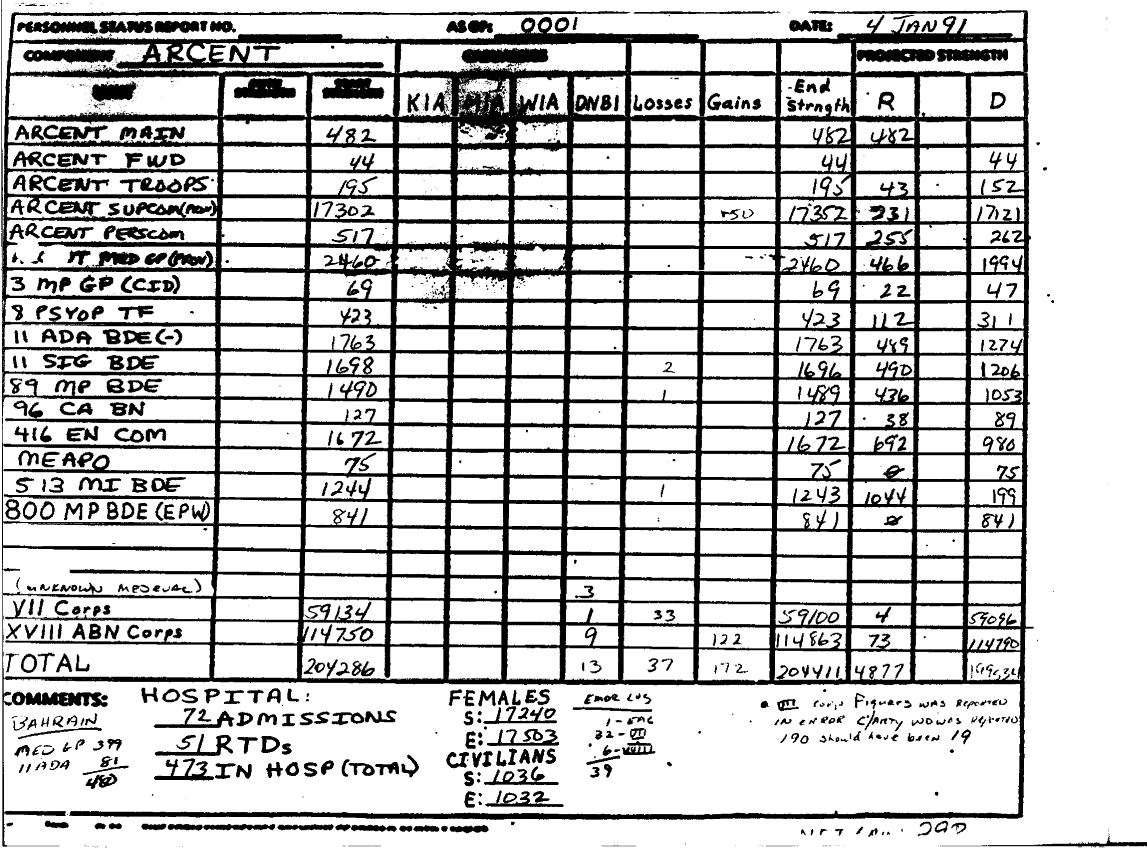 PERSONNEL STATUS REPORT NO. AS OF: 0001 DATE: 4 JAN 91
COMPONENT ARCENT PROJECTED STRENGTH
UNIT KIA MIA WIA DNBI Losses Gains End Strngth R D
ARCENT MAIN 482 482 482
ARCENT FWD 44 44 44
ARCENT TROOPS 195 195 43 152
ARCENT SUPCOM (PROV) 17302 +50 17352 231 17121
ARCENT PERSCOM 517 517 255 262
MED GP (PROV) 2460 2460 466 1994
3 MP GP (CID) 69 69 22 47
8 PSYOP TF 423 423 112 311
11 ADA BDE (-) 1763 1763 489 1274
11 SIG BDE 1698 2 1696 490 1206
89 MP BDE 1490 1 1489 436 1053
96 CA BN 127 127 38 89
416 EN COM 1672 1672 692 980
MEAPO 75 75 0 75
513 MI BDE 1244 1 1243 1044 199
800 MP BDE (EPW) 841 841 0 841
(UNKNOWN MEDEVAC) 3
VII Corps 59134 1 33 59100 4 59096
XVIII ABN Corps 114750 9 122 114863 73 114790
TOTAL 204286 13 37 172 204411 4877
COMMENTS: HOSPITAL:
72 ADMISSIONS
51 RTDs
473 IN HOSP (TOTAL)
BAHRAIN
MED GP 399
11 ADA 81
480
FEMALES
S: 17240
E: 17503
CIVILIANS
S: 1036
E: 1032
1-EAC
32-VII
6-XVIII
39
VII Corps Figures was reported
IN ERROR
190 should have been 19
290